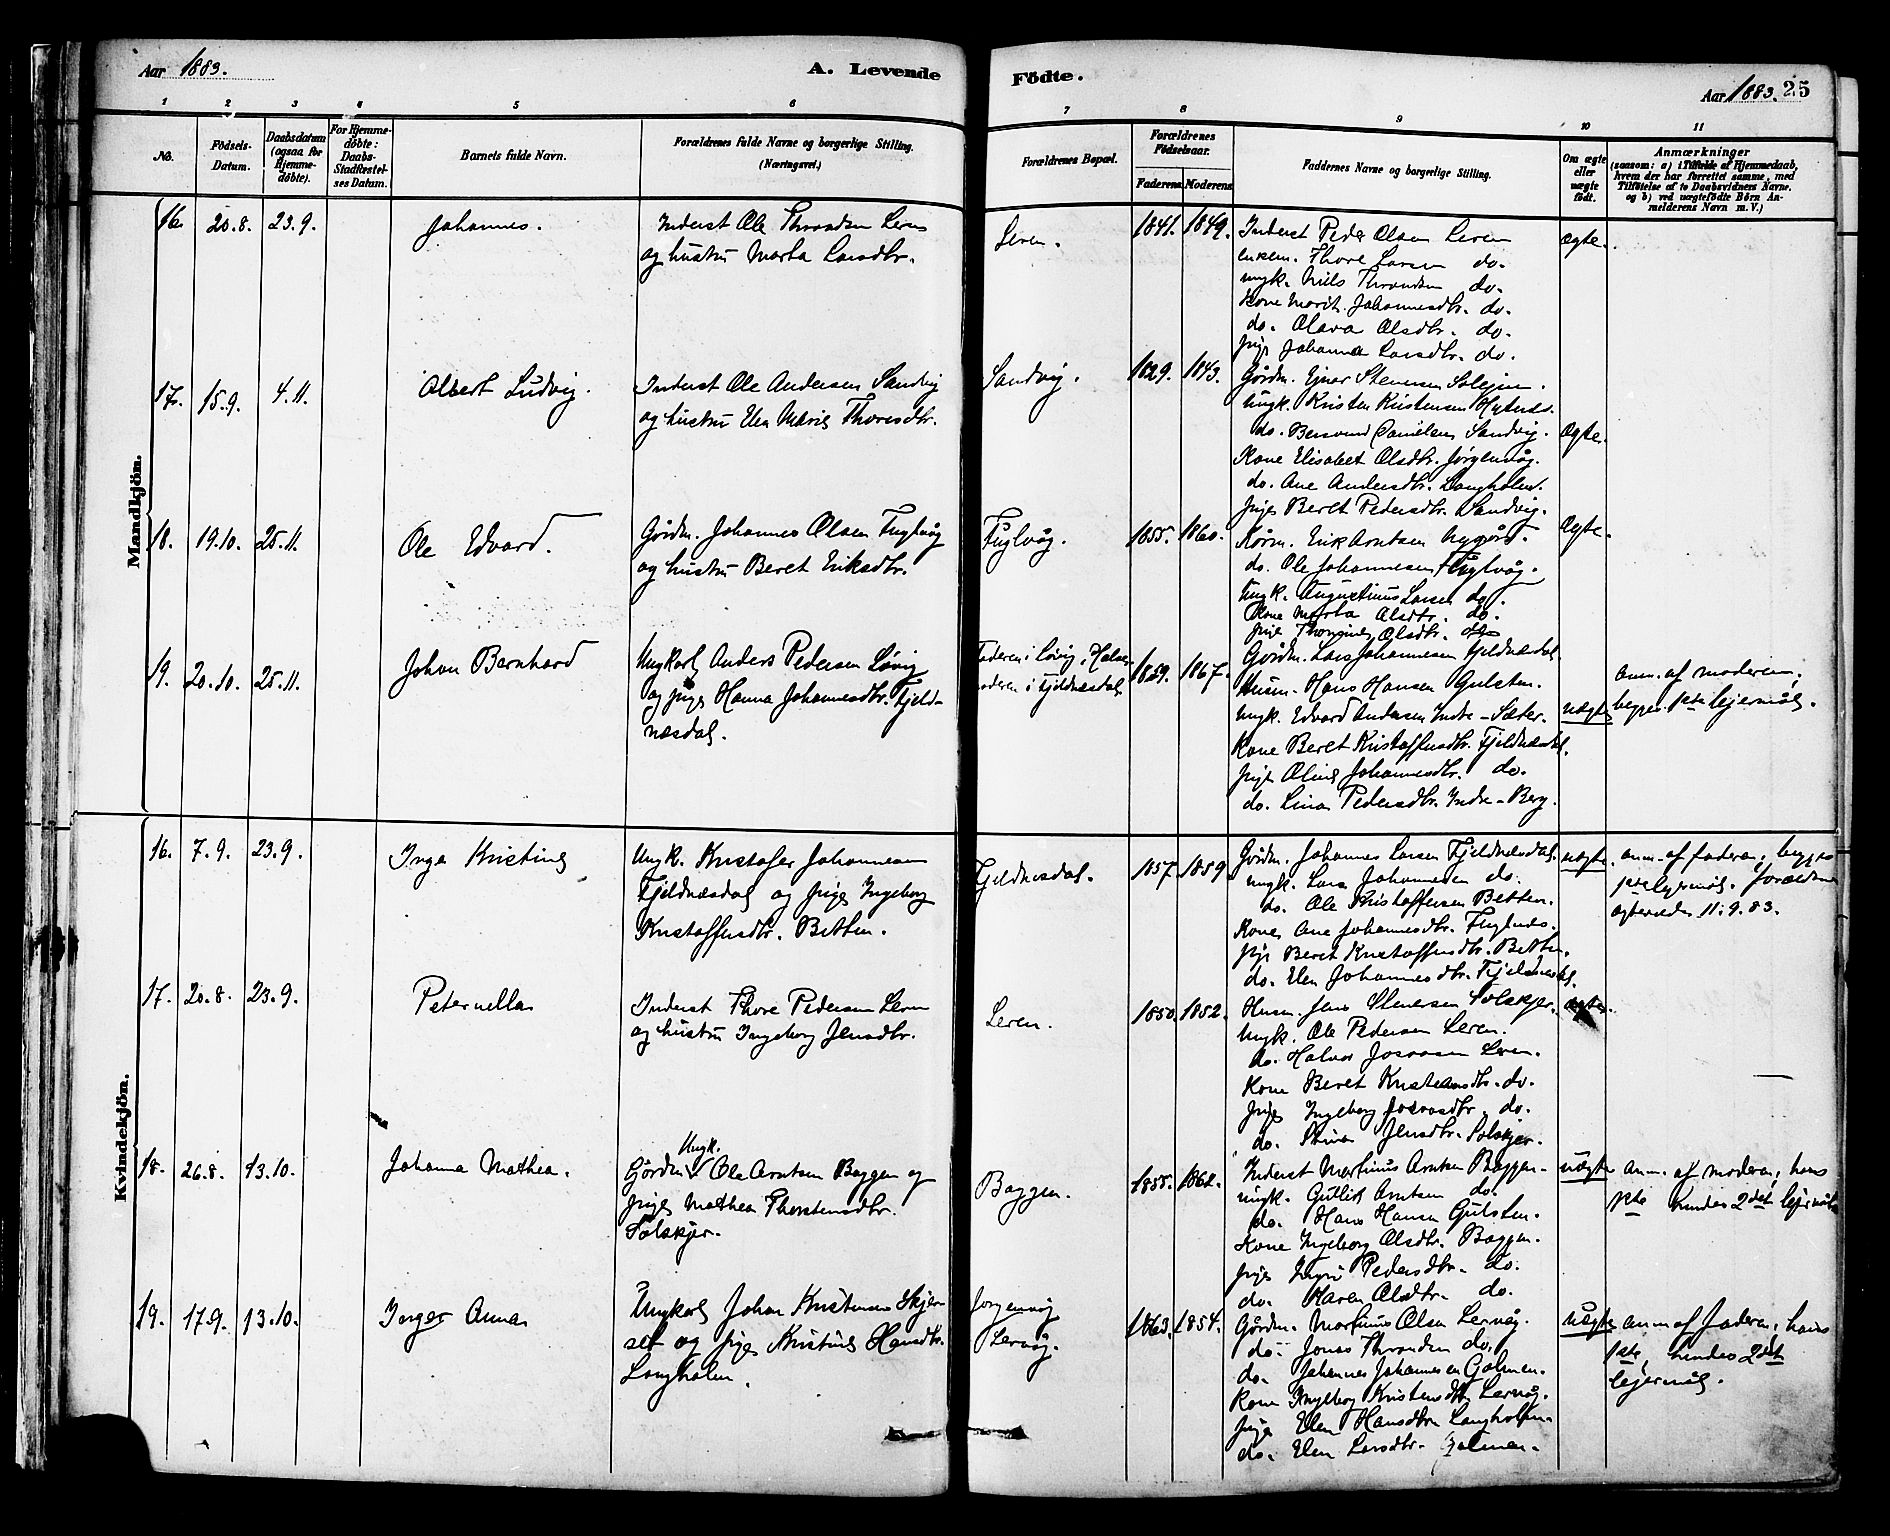 Aar 1883.
A. Levende
Födte.
Aar 1883. 25
1 2 3 4 5 6 7 8 9 10 11
No.
Födsels-Datum.
Daabsdatum (ogsaa for Hjemme-døbte).
For Hjemme-døbte: Daabs-Stadfæstel-ses Datum.
Barnets fulde Navn.
Forældrenes fulde Navne og borgerlige Stilling. (Næringsvei.)
Forældrenes Bopæl.
Forældrenes Födselsaar.
Faderens. Moderens.
Faddernes Navne og borgerlige Stilling.
Om ægte eller uægte født.
Anmærkninger
(saasom: a) i Tilfælde af Hjemmedaab,
hvem der har forrettet samme, med
Tilføielse af to Daabsvidners Navne.
og b) ved uægtefødte Børn An-
melderens Navn m. V.)
Mandkjön.
16. 20.8. 23.9. Johannes.
Inderst Ole Throndsen Leren
og hustru Marta Larsdtr.
Leren. 1841. 1849.
Inderst Peder Olsen Leren
enkem. Thore Larsen do.
ungk. Nils Throndsen do.
Kone Marit Johannesdtr. do.
do. Olava Olsdtr. do.
pige Johanna Larsdtr. do.
ægte.
17. 15.9. 4.11. Albert Ludvig.
Inderst Ole Andersen Sandvig
og hustru Elen Marie Thoresdtr.
Sandvig. 1829. 1843.
Gårdm. Ejnar Stenersen
Ungk. Kristen Kristensen
do. Bersvend Danielsen Sandvig.
Kone Elisabet Olsdtr. Jørgenvåg.
do. Ane Andersdtr. Langholen.
pige Beret Pedersdtr. Sandvig.
Ægte.
18. 19.10. 25.11. Ole Edvard.
Gårdm. Johannes Olsen Fuglvåg
og hustru Beret Eriksdtr.
Fuglvåg. 1855. 1860.
Erik Arntsen Nygård.
do. Ole Johannesen Fuglvåg.
Ungk. Augustinus Larsen do.
Kone Marta Olsdtr. do.
pige Olsdtr. do.
Ægte.
19. 20.10. 25.11. Johan Bernhard
Ungkarl Anders Pedersen Løvig
og pige Hanna Johannesdtr. Fjeld-
næsdal.
Faderen i Løvig, Halse
moderen i Fjeldnæsdal
1859. 1867.
Gårdm. Lars Johannesen Fjeldnæsdal.
Husm. Hans Hansen Gulsten.
Ungk. Edvard Andersen Indre-Sæter.
Kone Beret Kristoffersdtr. Fjeldnæsdal.
pige Oline Johannesdtr. do.
do. Lina Pedersdtr. Indre-Berg.
uægte
anm. af moderen,
begges 1ste lejermål.
Kvindekjön.
16. 7.9. 23.9. Inga Kristine
Ungk. Kristofer Johannesen
Fjeldnæsdal og pige Ingeborg
Kristoffersdtr. Betten.
Fjeldnesdal. 1857. 1859
Gårdm. Johannes Larsen Fjeldnæsdal.
ungk. Lars Johannesen do.
do. Ole Kristoffersen Betten.
Kone Ane Johannesdtr. Fuglnes.
pige Beret Kristoffersdtr. Betten.
do. Elen Johannesdtr. Fjeldnæsdal.
uægte.
anm. af faderen, begges
1ste lejermål. forældrene
ægteviede 11.9.83.
17. 20.8. 23.9. Peternella
Inderst Thore Pedersen Leren
og hustru Ingeborg Jensdtr.
Leren. 1850. 1852.
Husm. Jens Stenersen Solskjer.
Ungk. Ole Pedersen Leren.
do. Halvor Leren.
Kone Beret Kristensdtr. do.
pige Ingeborg do.
do. Jensdtr. Solskjer.
ægte.
18. 26.8. 13.10. Johanna Mathea.
Ungk.
Gårdm. Ole Arntsen Baggen og
pige Mathea Thorstensdtr.
Solskjer.
Baggen. 1855. 1862.
Inderst Martinus Arntsen Baggen.
ungk. Gutlik Arntsen do.
do. Hans Hansen Gulsten.
Kone Ingeborg Olsdtr. Baggen.
pige Pedersdtr. do.
do. Maren Olsdtr. do.
uægte
anm. af moderen, hans
1ste hendes 2det lejermål
19. 17.9. 13.10. Inger Anna
Ungkarl Johan Kristensen Skjer-
set og pige Kristine Hansdtr.
Langholen.
Jørgenvåg
Lervåg.
1863. 1854.
Gårdm. Martinus Olsen Lervåg.
do. Jonas Throndsen do.
do. Johannes Johannesen Galmen.
Kone Ingeborg Kristensdtr. Lervåg.
pige Elen Hansdtr. Langholen.
do. Elen Larsdtr. Galmen.
uægte
anm af faderen, hans
1ste, hendes 2det
lejermål.